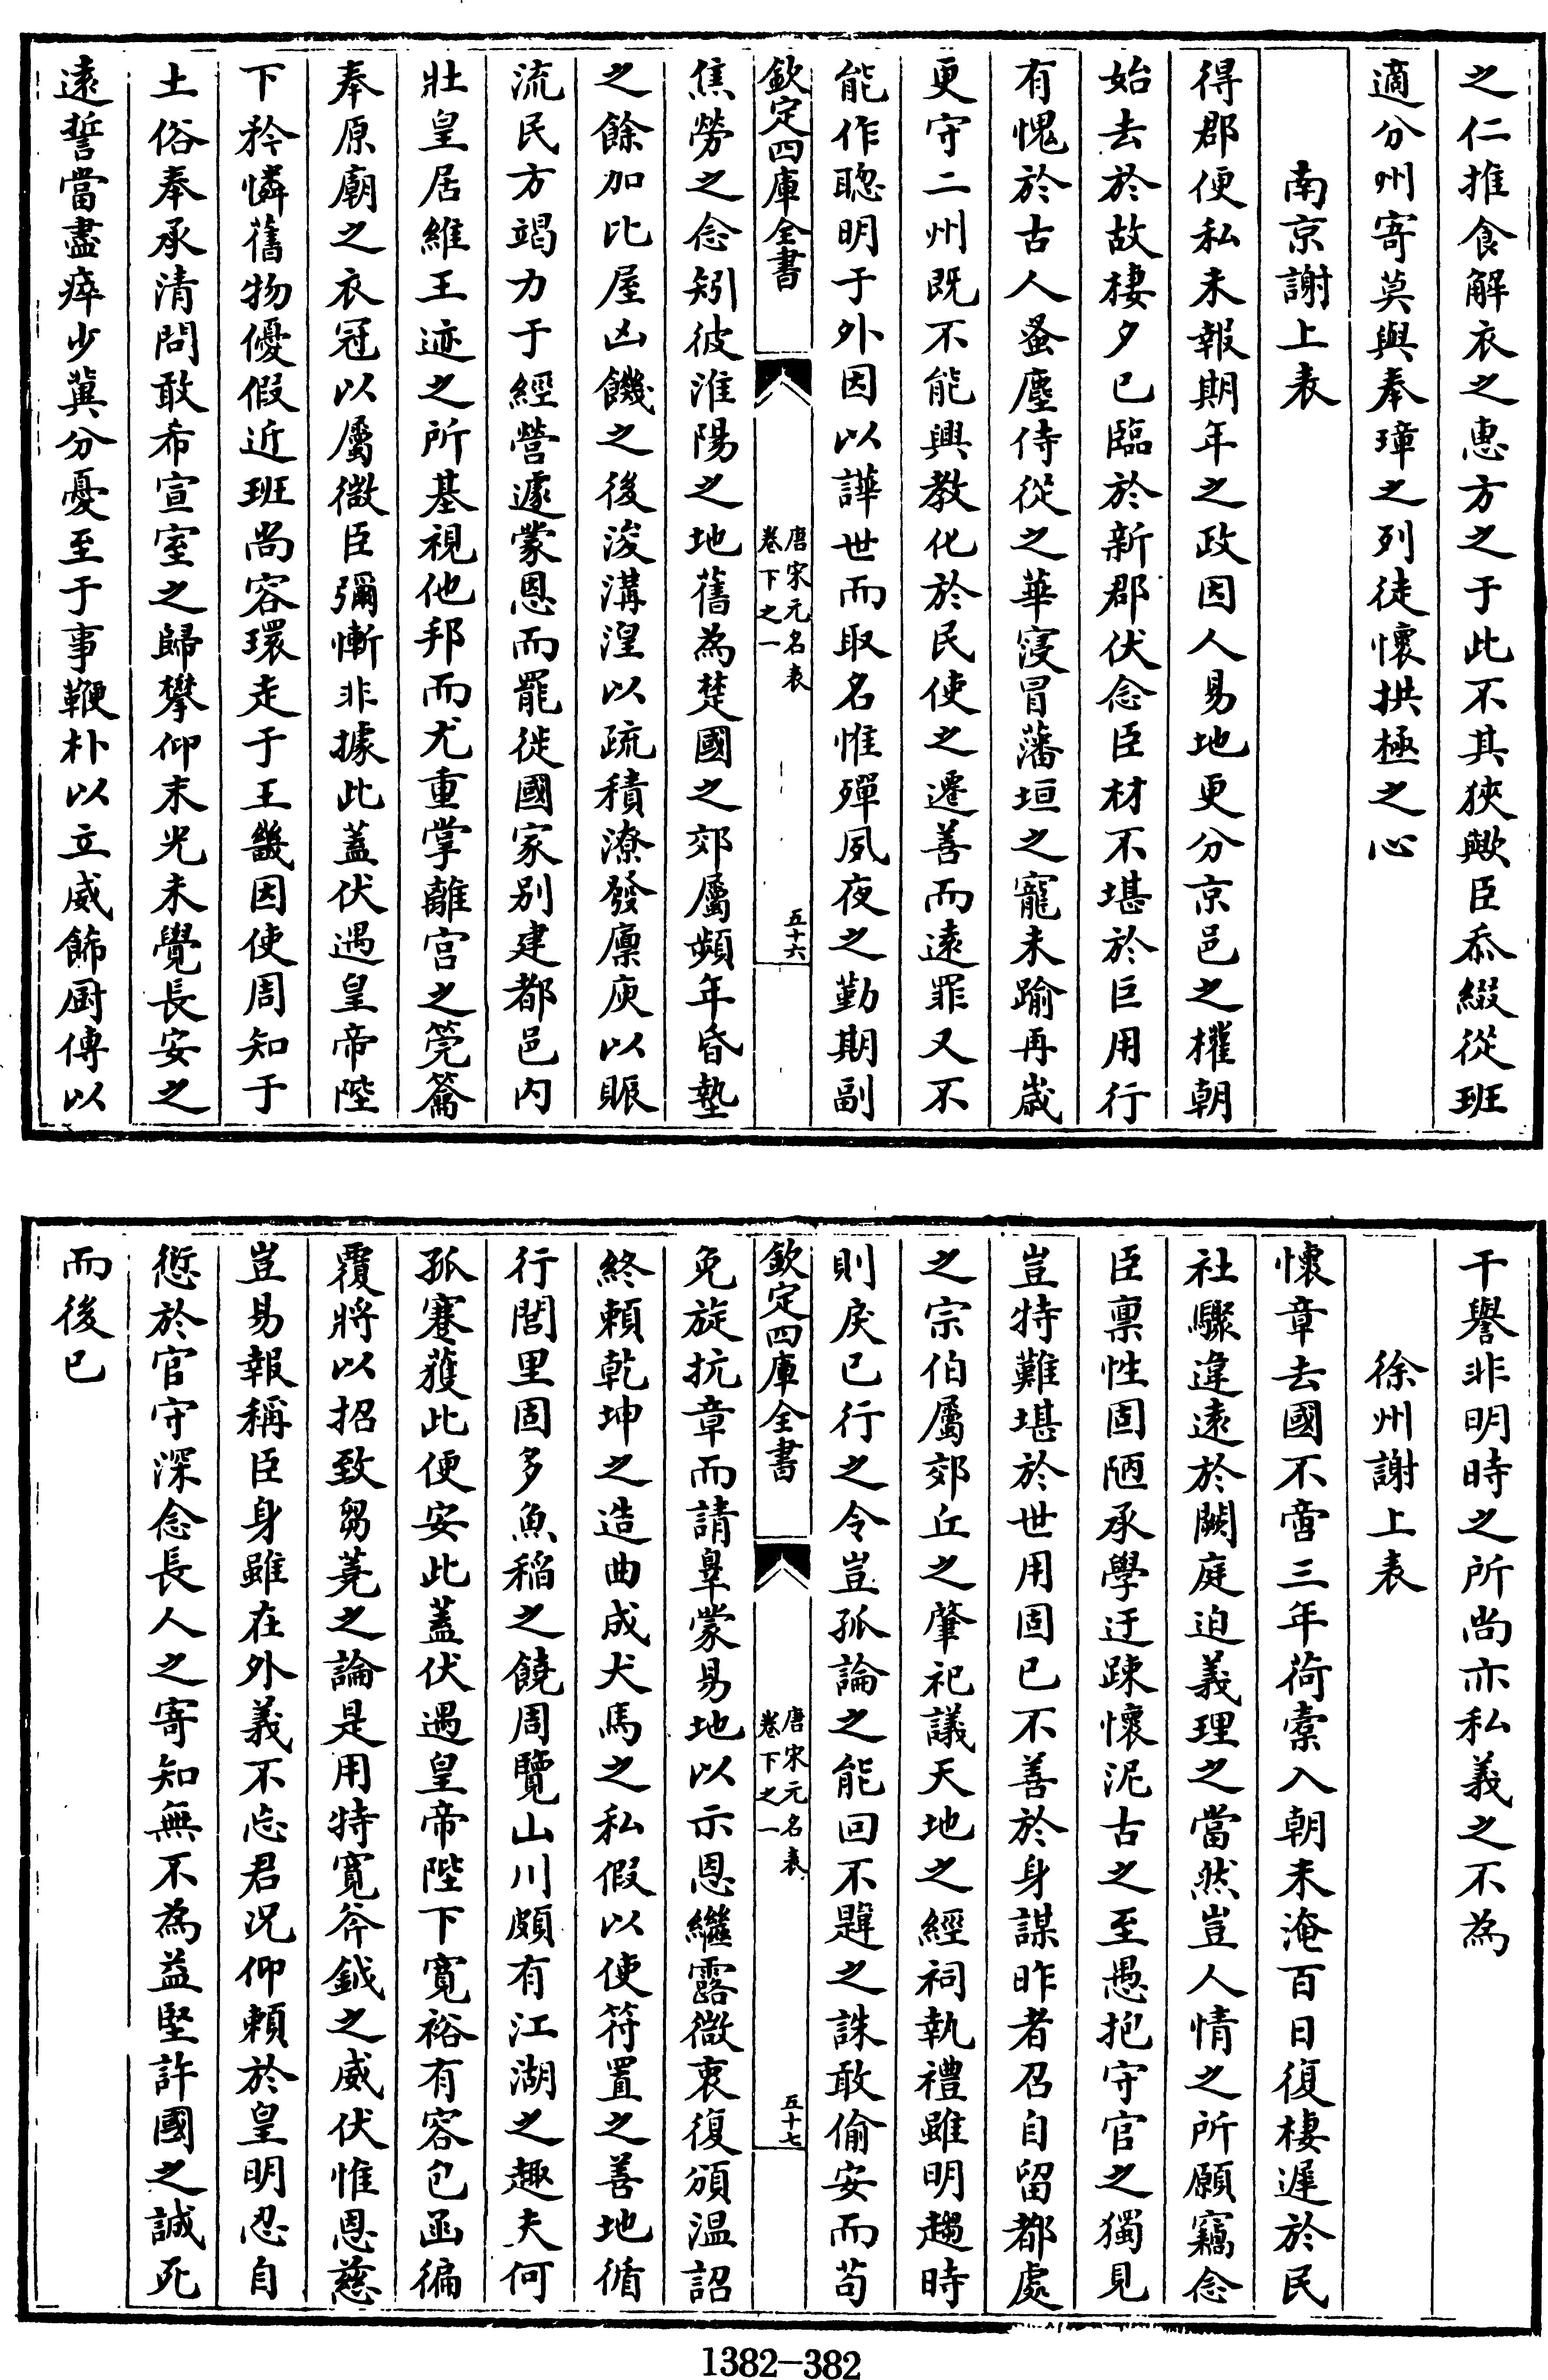 之仁推食解衣之惠方之于此不其狹歟臣忝綴從班
適分州寄莫與奉璋之列徒懷拱極之心
南京謝上表
得郡便私未報期年之政因人易地更分京邑之權朝
始去於故棲夕已臨於新郡伏念臣材不堪於巨用行
有愧於古人蚤塵侍從之華寖冒藩垣之寵未踰再歲
更守二州既不能興教化於民使之遷善而遠罪又不
能作聰明于外因以譁世而取名惟殫夙夜之勤期副
欽定四庫全書
唐宋元名表
卷下之一
五十六
焦勞之念矧彼淮陽之地舊為楚國之郊屬頻年昏墊
之餘加比屋凶饑之後浚溝湟以疏積潦發廩庾以賑
流民方竭力于經營遽蒙恩而罷徙國家别建都邑内
壯皇居維王迹之所基視他邦而尤重掌離宫之筦籥
奉原廟之衣冠以屬微臣彌慚非據此蓋伏遇皇帝陛
下矜憐舊物優假近班尚容環走于王畿因使周知于
土俗奉承清問敢希宣室之歸攀仰末光未覺長安之
遠誓當盡瘁少冀分憂至于事鞭朴以立威飾厨傳以
干譽非明時之所尚亦私義之不為
徐州謝上表
懷章去國不啻三年荷橐入朝未淹百日復棲遲於民
社驟違遠於闕庭迫義理之當然豈人情之所願竊念
臣禀性固陋承學迂踈懷泥古之至愚抱守官之獨見
豈特難堪於世用固已不善於身謀昨者召自留都處
之宗伯屬郊丘之肇祀議天地之經祠執禮雖明趨時
則戾已行之令豈孤論之能回不韙之誅敢偷安而苟
欽定四庫全書
唐宋元名表
卷下之一
五十七
免旋抗章而請辠蒙易地以示恩繼露微衷復頒温詔
終賴乾坤之造曲成犬馬之私假以使符置之善地循
行閭里固多魚稲之饒周覽山川頗有江湖之趣夫何
孤蹇獲此便安此蓋伏遇皇帝陛下寛裕有容包函徧
覆將以招致芻蕘之論是用特寛斧鉞之威伏惟恩慈
豈易報稱臣身雖在外義不忘君况仰賴於皇明忍自
愆於官守深念長人之寄知無不為益堅許國之誠死
而後已
1382-382